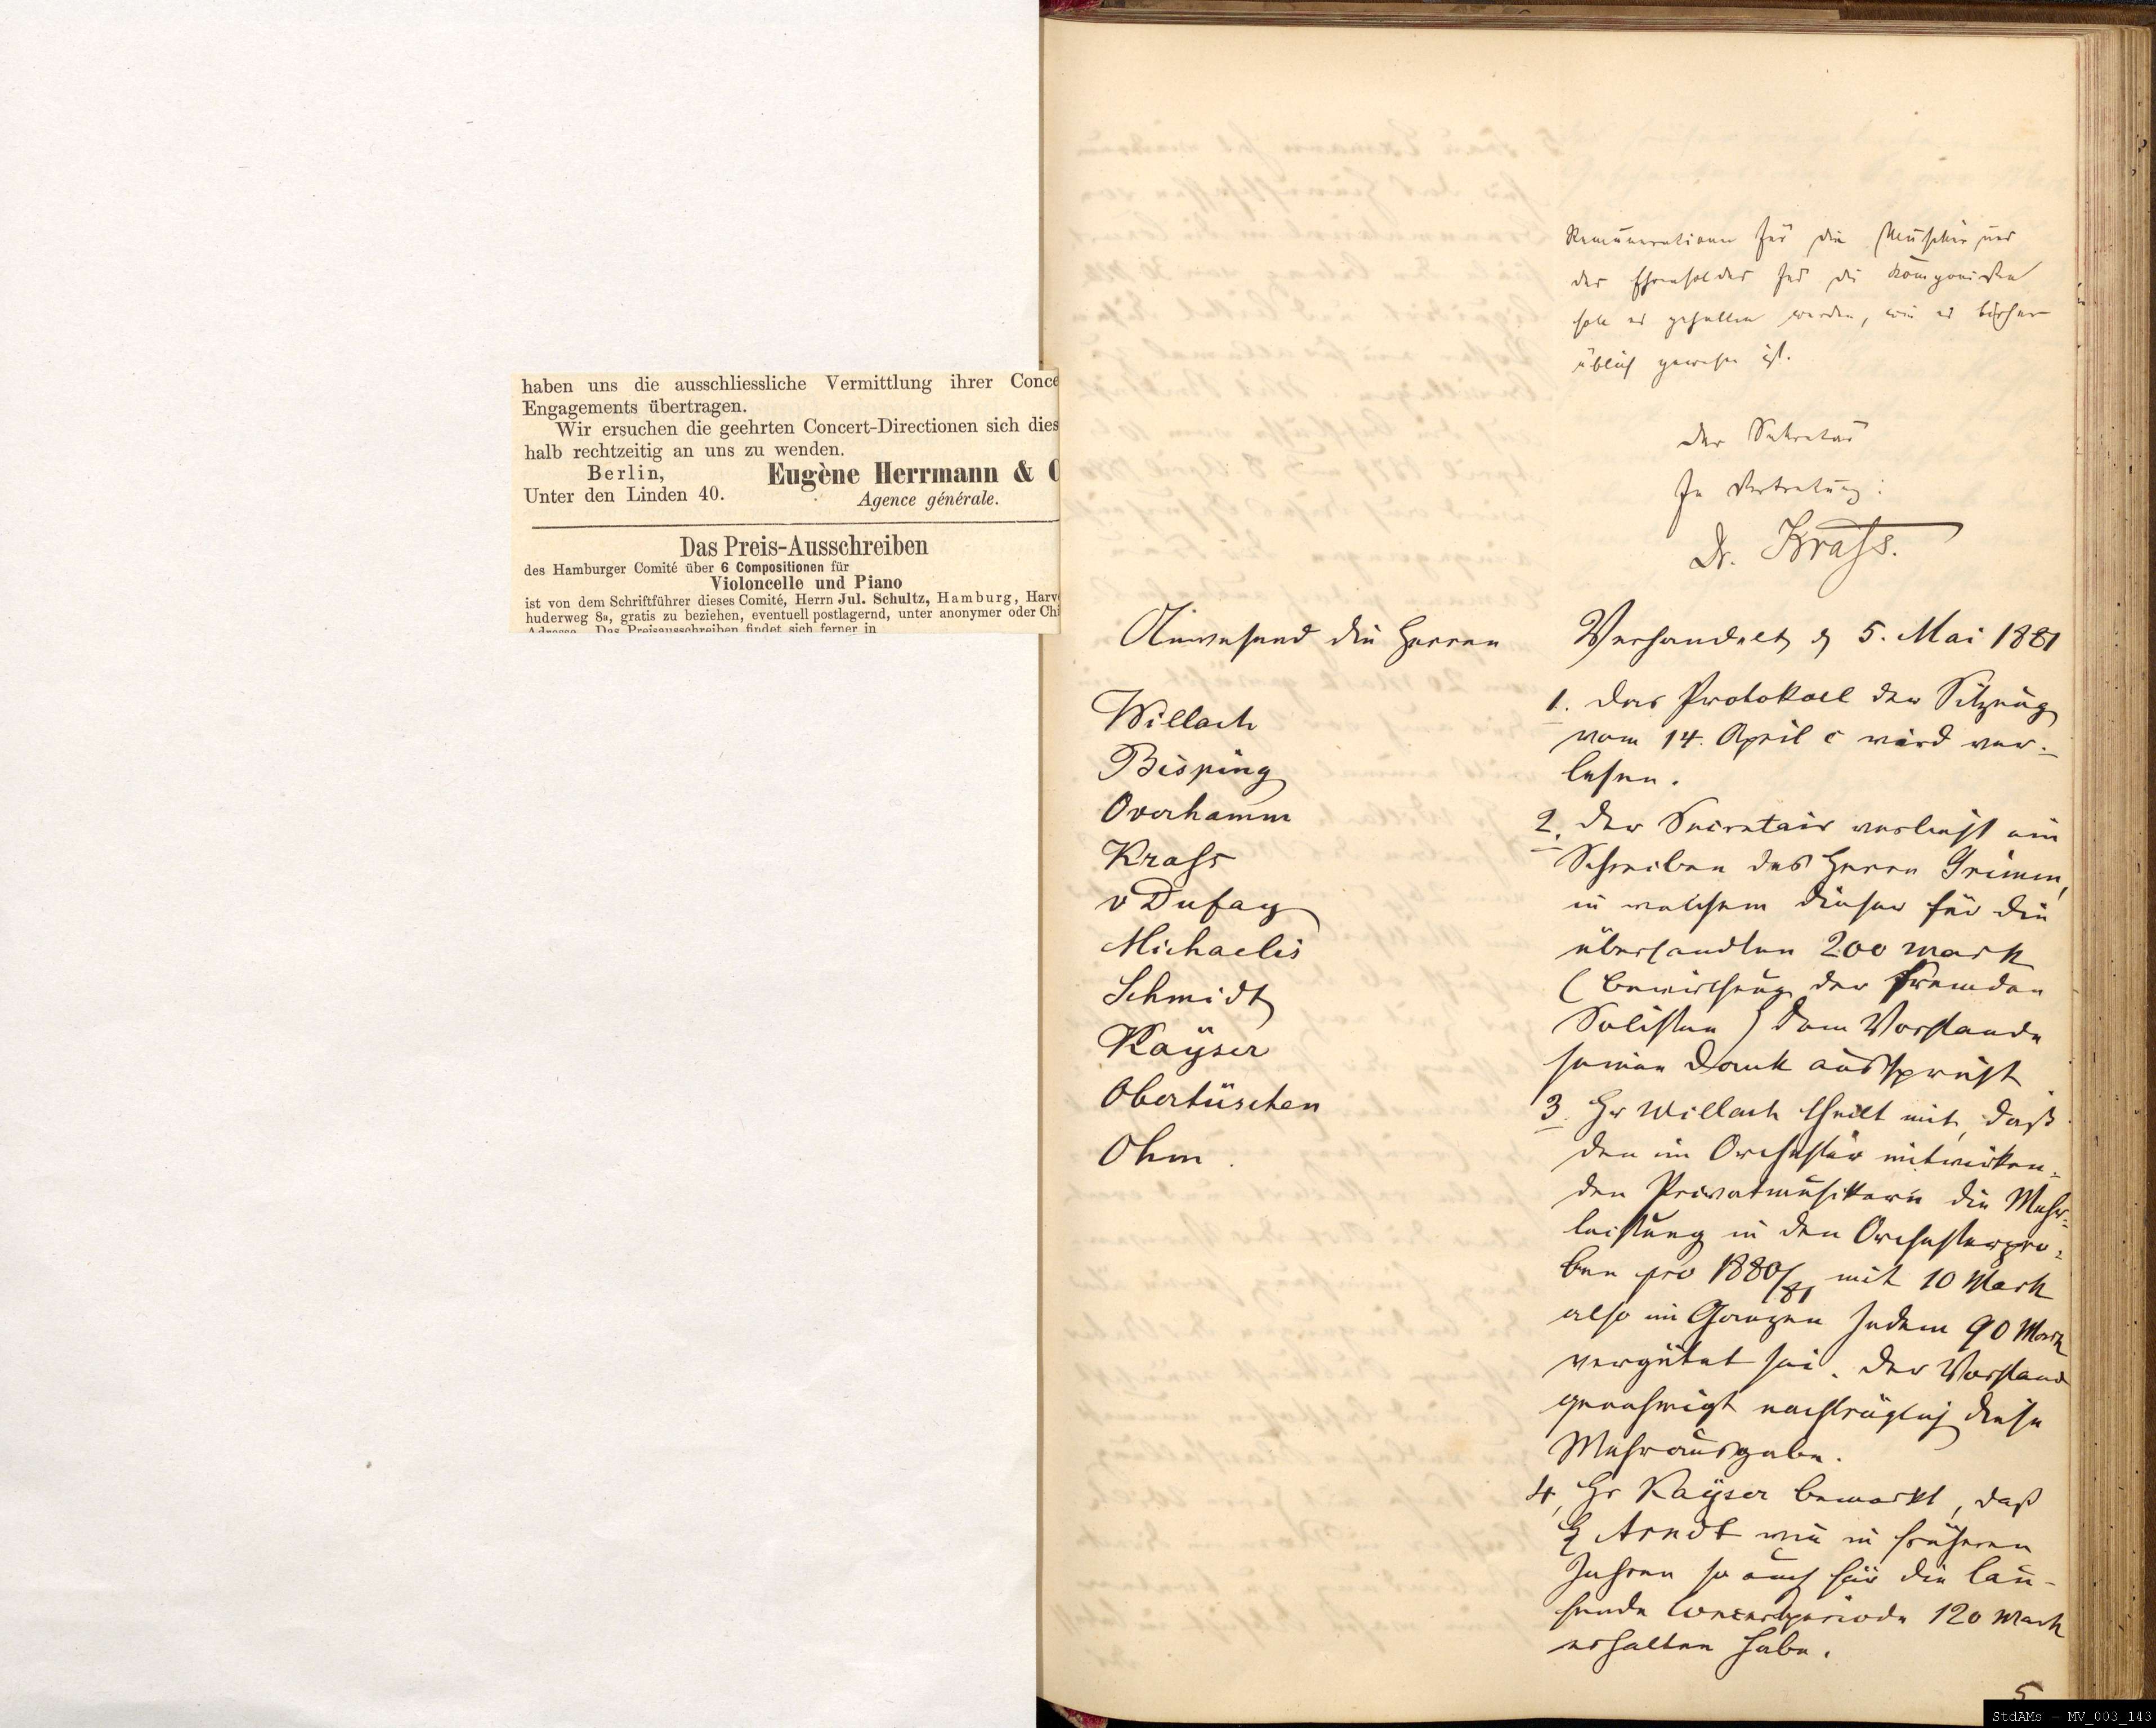 haben uns die ausschliessliche Vermittlung ihrer Conce
Engagements übertragen.
Wir ersuchen die geehrten Concert-Directionen sich dies
halb rechtzeitig an uns zu wenden.
Berlin,
Unter den Linden 40.
Eugène Herrmann & C
Agence générale.
Das Preis-Ausschreiben
des Hamburger Comité über 6 Compositionen für
Violoncelle und Piano
ist von dem Schriftführer dieses Comité, Herrn Jul. Schultz, Hamburg, Harv
huderweg 8a, gratis zu beziehen, eventuell postlagernd, unter anonymer oder Chi
Adresse. Das Preisausschreiben findet sich ferner in
Remunerationen für die Musiker und
der Ehrensolder für die Komponisten
soll es gehalten werden, wie es bisher
üblich gewesen ist.
Der Sekretär
In Vertretung:
Dr. Krass.
Anwesend die Herren
Willach
Bisping
Overhamm
Krass
v Dufay
Michaelis
Schmidt
Kayser
Obertüschen
Ohm.
Verhandelt d 5. Mai 1881
1. Das Protokoll der Sitzung
vom 14. April c wird ver-
lesen.
2. Der Secretair verliest ein
Schreiben des Herrn Grimm,
in welchem dieser für die
übersandten 200 Mark
(Bewirthung der fremden
Solisten) dem Vorstande
seinen Dank ausspricht
3. Hr Willach theilt mit, daß
den im Orchester mitwirken-
den Privatmusikern die Mehr-
leistung in den Orchesterpro-
ben pro 1880/81 mit 10 Mark
also im Ganzen Jedem 90 Mark
vergütet sei. Der Vorstand
genehmigt nachträglich diese
Mehrausgabe.
4, Hr Kayser bemerkt, daß
H Arndt wie in früheren
Jahren so auch für die lau-
fende Concertperiode 120 Mark
erhalten habe.
5
StdAMs - MV_003_143